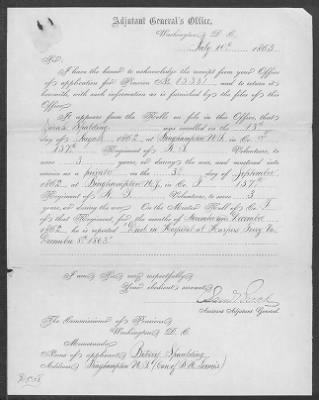 Adjutant General's Office,
Washington, D. C.
July 10th 1863.
Sir:
I have the honor to acknowledge the receipt from your Office
of application for Pension No. 23351 and to return it
herewith, with such information as is furnished by the files of this
Office.
It appears from the Rolls on file in this Office, that
Spaulding was enrolled on the 13th
day of August, 1862, at Binghampton N.Y. in Co. F
137th Regiment of N.Y. Volunteers, to
serve 3 years, or during the war, and mustered into
service as a private on the day of September
1862, at Binghampton N.Y. in Co. F 137th
Regiment of N.Y. Volunteers, to serve 3
years, or during the war. On the Muster Roll of Co. F
of that Regiment, for the months of December
1862, he is reported "Died in Hospital at Harpers Ferry Va.
December 8th 1862."
I am, Sir, very respectfully,
Your obedient servant,
Assistant Adjutant General.
The Commissioner of Pensions
Washington D. C.
Memoranda:
Name of applicant, Betsey Spaulding
Address, Binghampton N.Y. (Care of